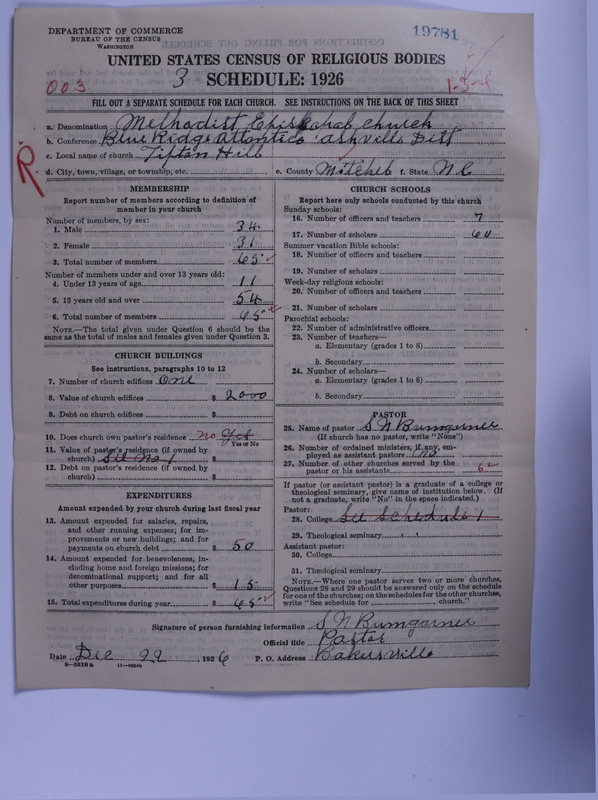 DEPARTMENT OF COMMERCE
BUREAU OF THE CENSUS
WASHINGTON
19781
UNITED STATES CENSUS OF RELIGIOUS BODIES
3 SCHEDULE: 1926
003
FILL OUT A SEPARATE SCHEDULE FOR EACH CHURCH. SEE INSTRUCTIONS ON THE BACK OF THIS SHEET
a. Denomination Methodist Episcopal Church
b. Conference Blue Ridge Atlantic Ashville Dist
c. Local name of church Tipton Hill
d. City, town, village, or township, etc. e. County Mitchel f. State NC
R.
MEMBERSHIP
Report number of members according to definition of member in your church
Number of members, by sex:
1. Male 34
2. Female 31
3. Total number of members 65
Number of members under and over 13 years old:
4. Under 13 years of age 11
5. 13 years old and over 54
6. Total number of members 65
NOTE.—The total given under Question 6 should be the same as the total of males and females given under Question 3.
CHURCH BUILDINGS
See instructions, paragraphs 10 to 12
7. Number of church edifices One
8. Value of church edifices $ 2000
9. Debt on church edifices $
10. Does church own pastor's residence no Yes
Yes or No
11. Value of pastor's residence (if owned by church) See No 1 $
12. Debt on pastor's residence (if owned by church) $
EXPENDITURES
Amount expended by your church during last fiscal year
13. Amount expended for salaries, repairs, and other running expenses; for improvements or new buildings; and for payments on church debt $ 50
14. Amount expended for benevolences, including home and foreign missions; for denominational support; and for all other purposes $ 15
15. Total expenditures during year $ 65
CHURCH SCHOOLS
Report here only schools conducted by this church
Sunday schools:
16. Number of officers and teachers 7
17. Number of scholars 60
Summer vacation Bible schools:
18. Number of officers and teachers
19. Number of scholars
Week-day religious schools:
20. Number of officers and teachers
21. Number of scholars
Parochial schools:
22. Number of administrative officers
23. Number of teachers—
a. Elementary (grades 1 to 8)
b. Secondary
24. Number of scholars—
a. Elementary (grades 1 to 8)
b. Secondary
PASTOR
25. Name of pastor S N Bumgarner
(If church has no pastor, write "None")
26. Number of ordained ministers, if any, employed as assistant pastors No
27. Number of other churches served by the pastor or his assistants 6
If pastor (or assistant pastor) is a graduate of a college or theological seminary, give name of institution below. (If not a graduate, write "No" in the space indicated.)
Pastor:
28. College See Schedule 1
29. Theological seminary " "
Assistant pastor:
30. College
31. Theological seminary
NOTE.—Where one pastor serves two or more churches, Questions 28 and 29 should be answered only on the schedule for one of the churches; on the schedules for the other churches, write "See schedule for church."
Signature of person furnishing information S N Bumgarner
Official title Pastor
Date Dec 22, 1926 P. O. Address Bakersville